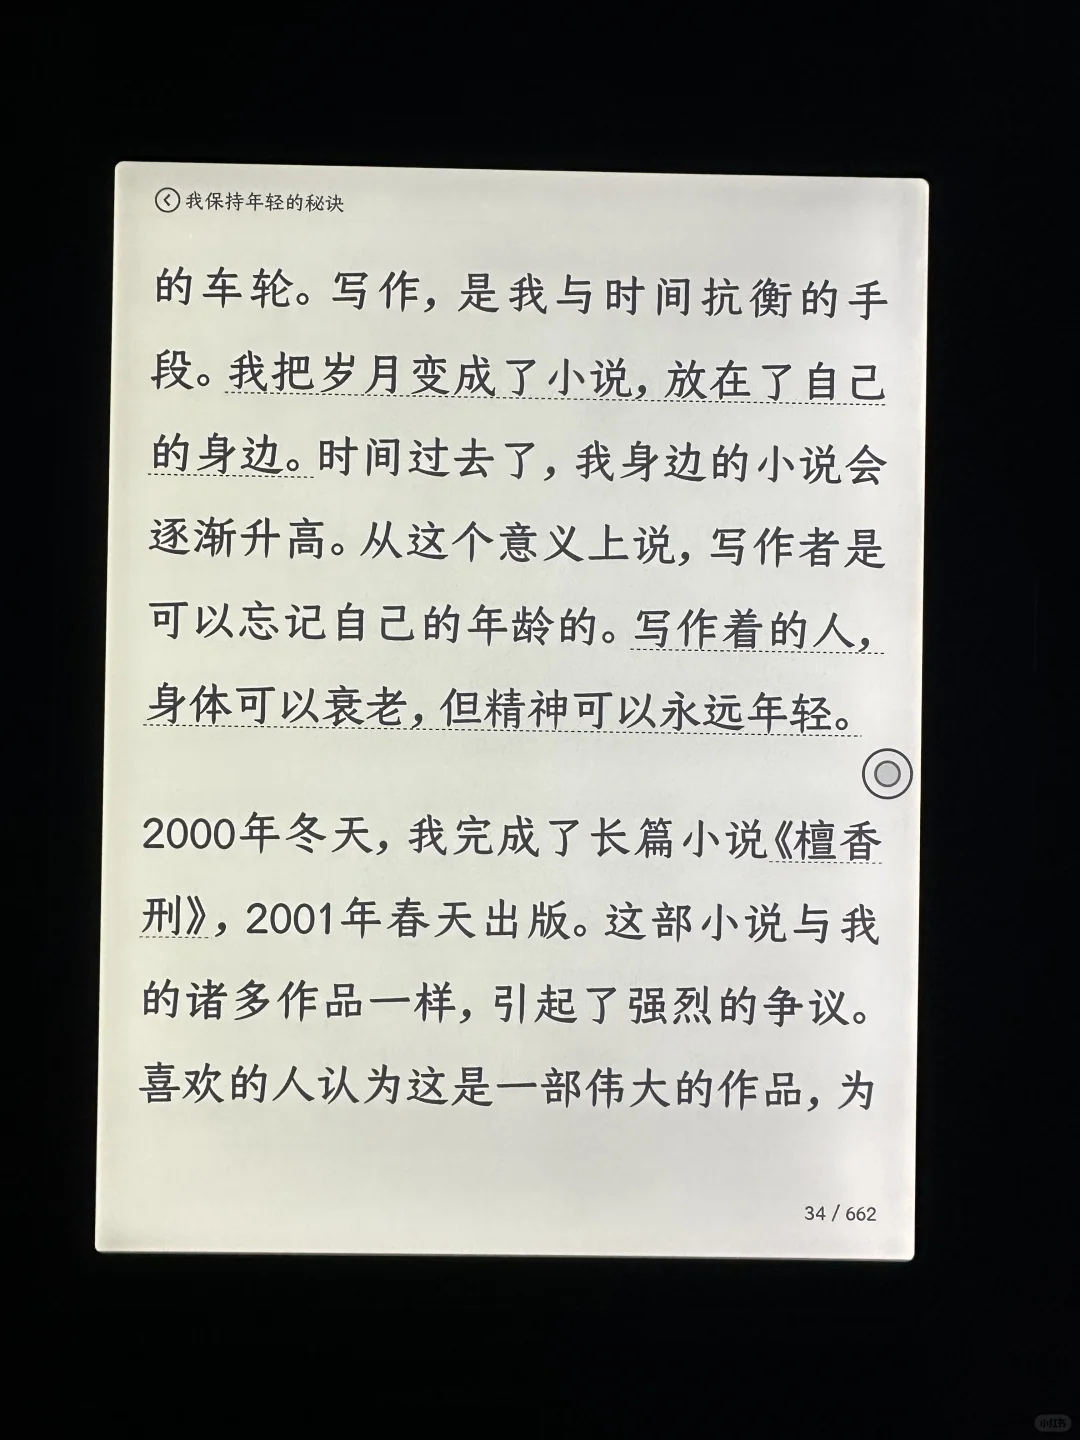 我保持年轻的秘诀
的车轮。写作，是我与时间抗衡的手
段。我把岁月变成了小说，放在了自己
的身边。时间过去了，我身边的小说会
逐渐升高。从这个意义上说，写作者是
可以忘记自己的年龄的。写作着的人，
身体可以衰老，但精神可以永远年轻。
2000年冬天，我完成了长篇小说《檀香
刑》，2001年春天出版。这部小说与我
的诸多作品一样，引起了强烈的争议。
喜欢的人认为这是一部伟大的作品，为
34 / 662
小红书